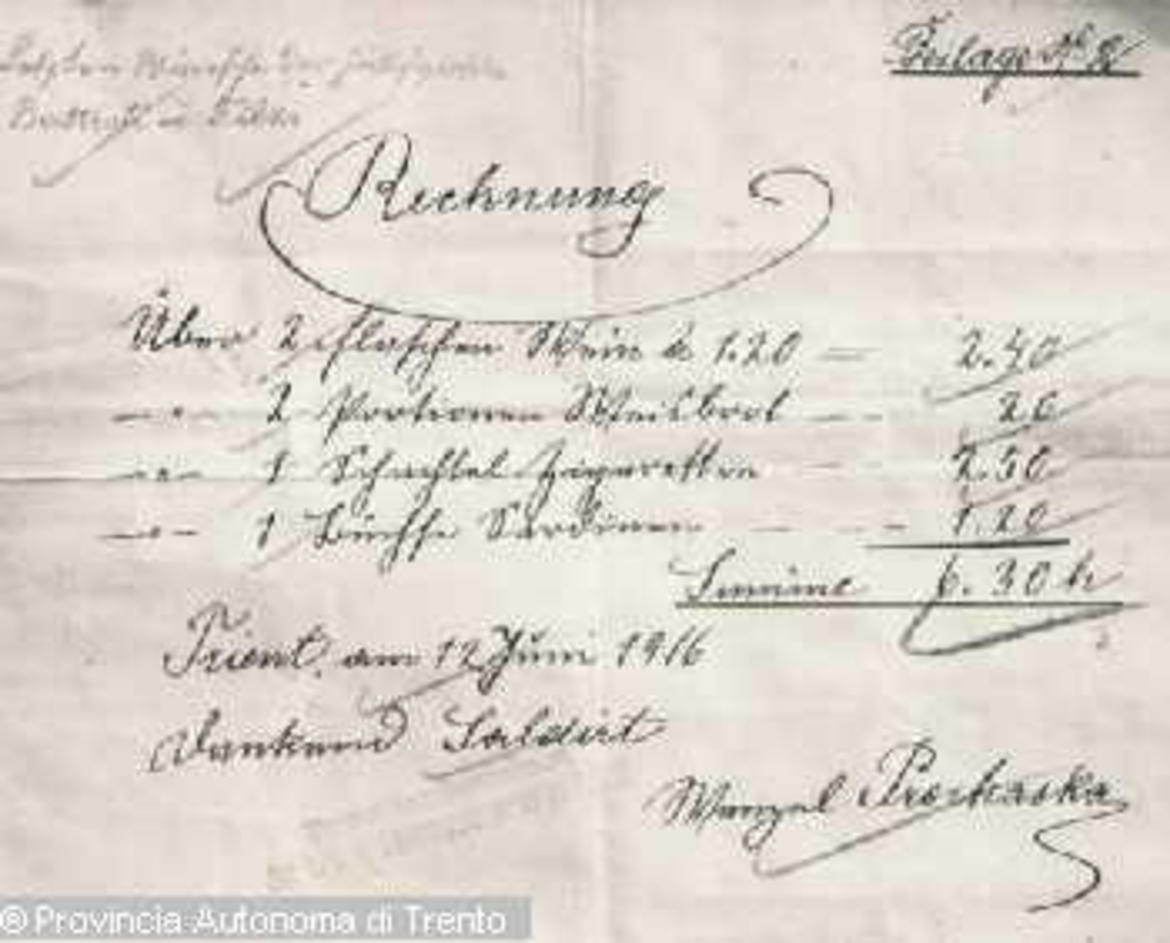 Beilage № 8
Letzten Wünsche der Justifizierten
Battisti u. Filzi
Rechnung
Über 2 Flaschen Wein à 1.20 — 2.40
—„— 2 Portionen Weisbrot — — 20
—„— 1 Schachtel Zigaretten — 2.50
—„— 1 Büchse Sardinen — — — 1.20
Summe 6.30 h
Trient, am 12 Juni 1916
Dankend Saldirt
Wenzel Prochaska
© Provincia Autonoma di Trento